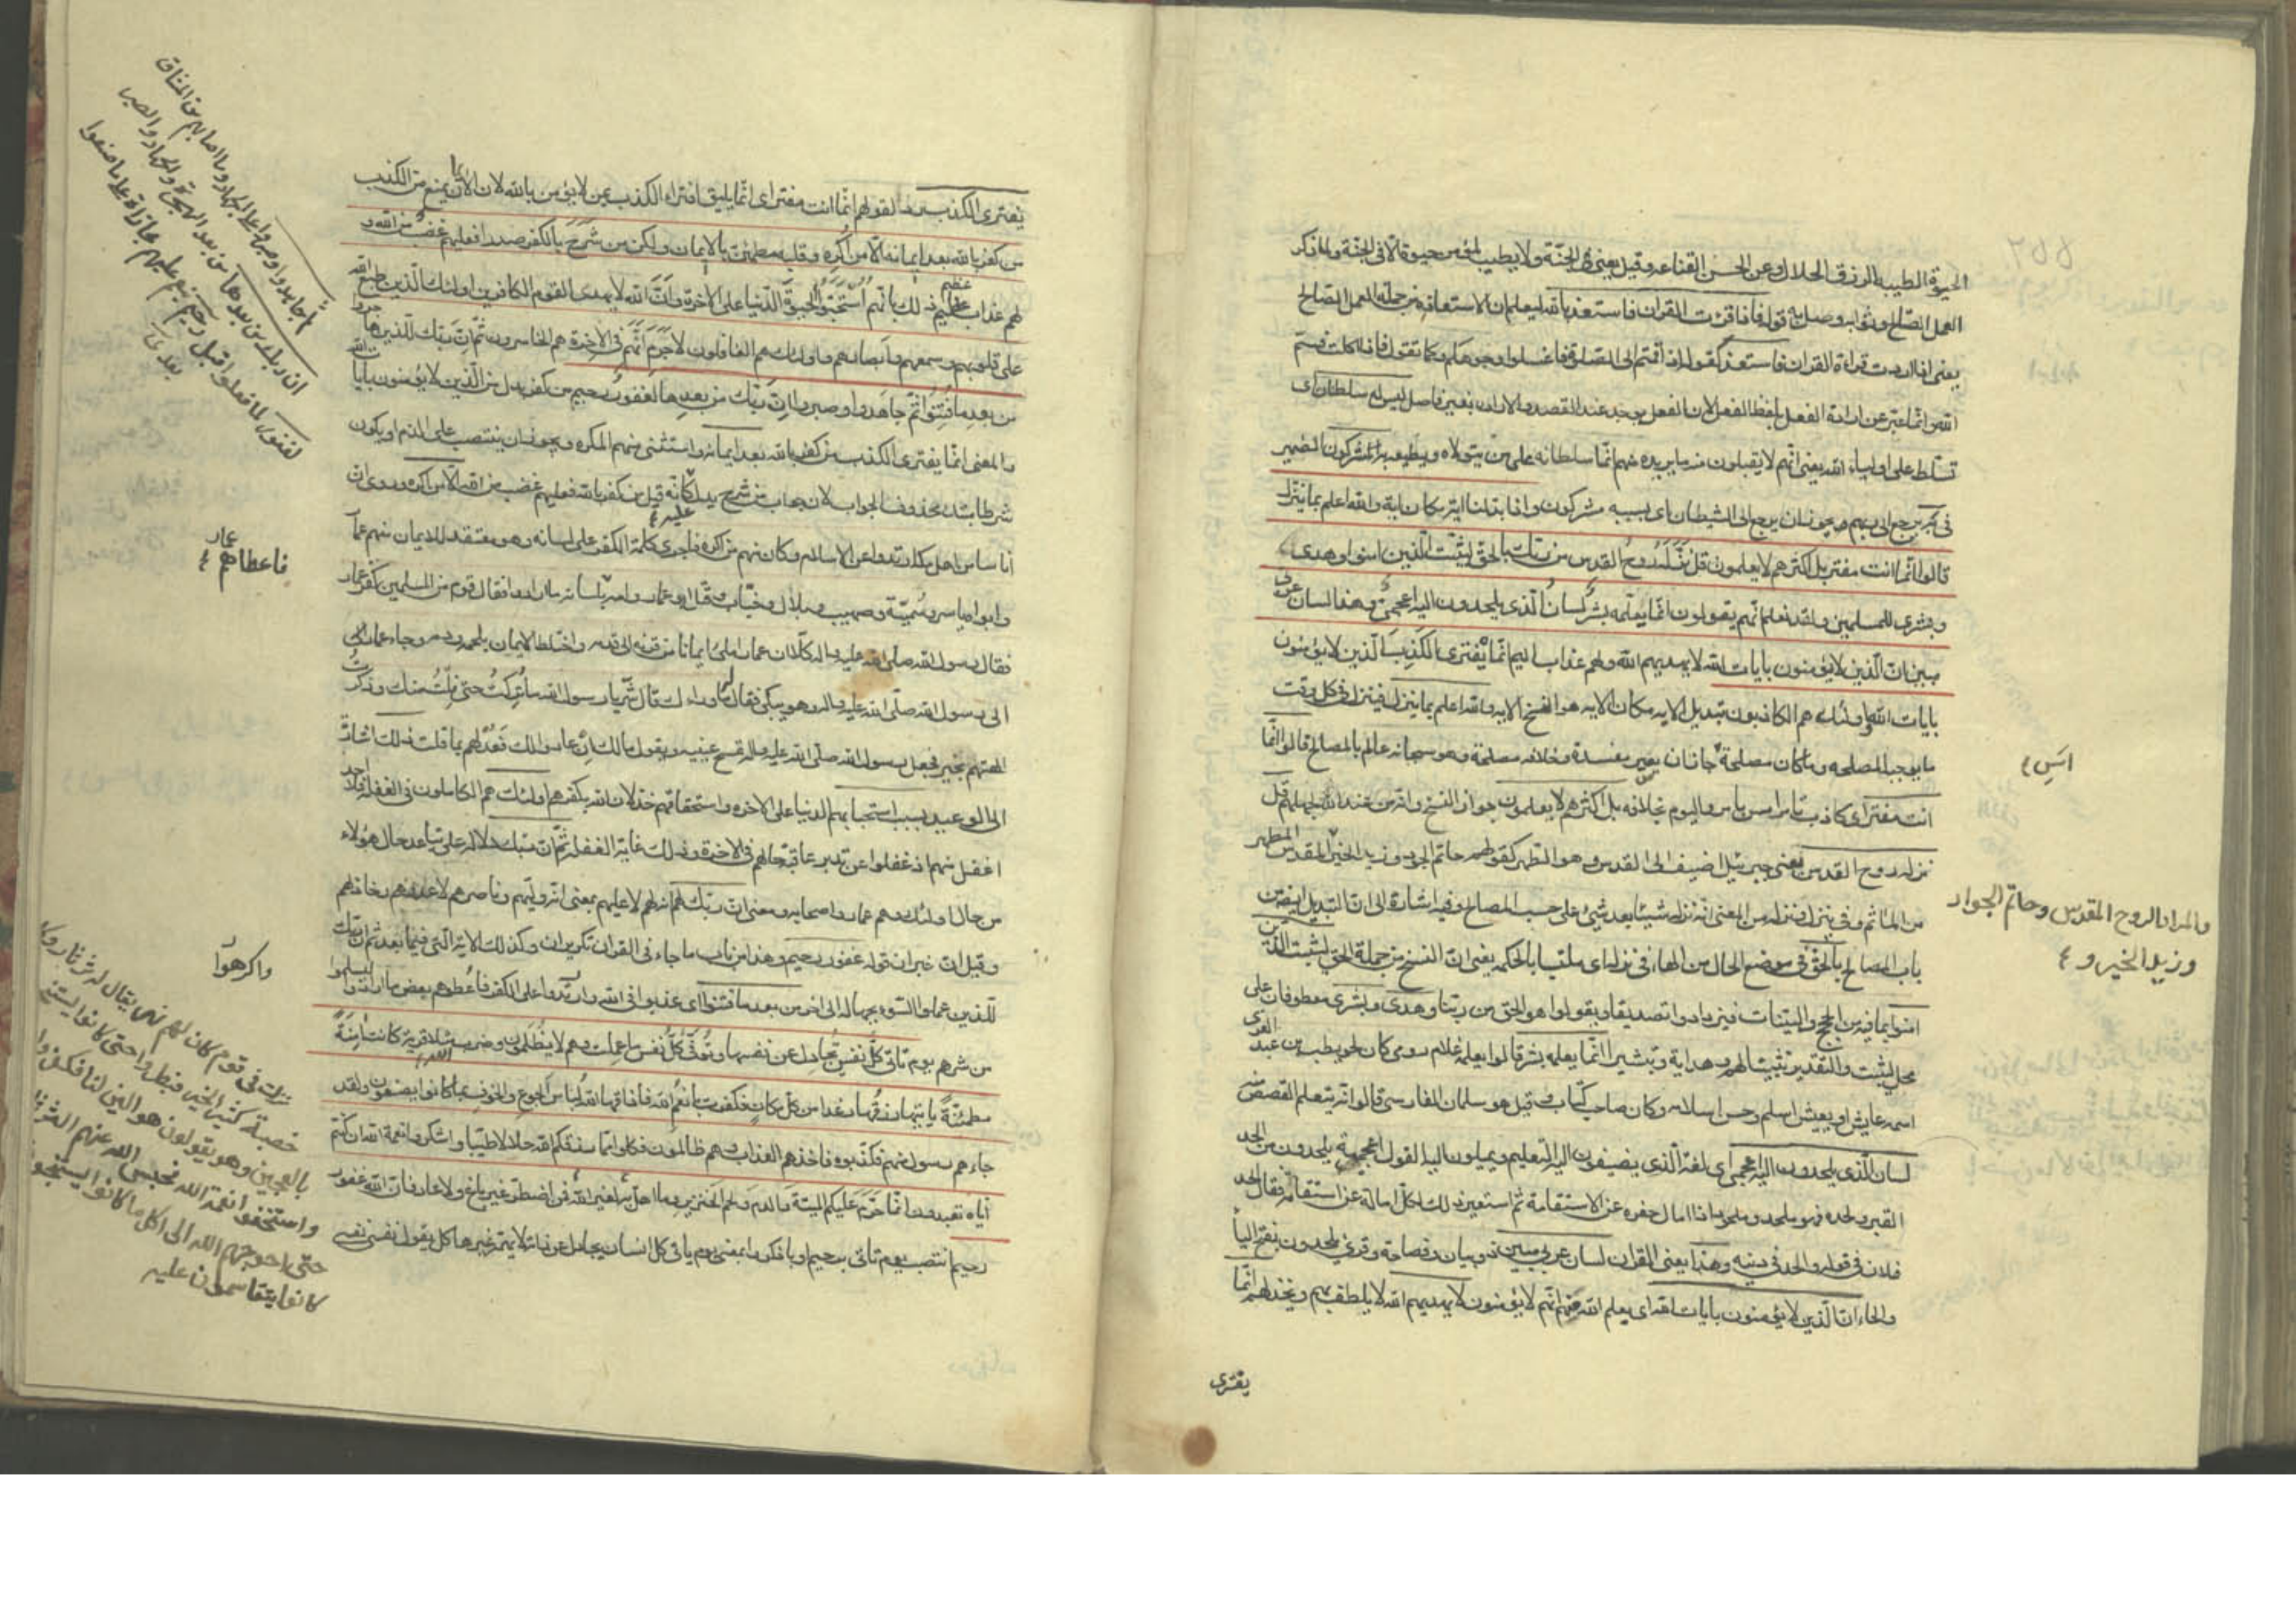 الحيوة الطيبة الرزق الحلال وعن الحسن القناعة وقيل يعنى فى الجنة ولا يطيب لمؤمن حيوة الا فى الجنة ولما ذكر
العمل الصالح وثوابه وصل به قوله فاذا قرئت القران فاستعذ بالله ليعلم ان الاستعاذة من جملة العمل الصالح
يعنى اذا اردت قراءة القران فاستعذ كقوله اذا قمتم الى الصلوة فاغسلوا وجوهكم وكما تقول اذا اكلت فسم
الله وانما عبر عن ارادة الفعل بلفظ الفعل لان الفعل يوجد عند القصد والارادة بغير فاصل ليس له سلطان اى
تسلط على اولياء الله يعنى انهم لا يقبلون منه ما يريده منهم انما سلطانه على من يتولاه ويطيعه به مشركون الضمير
يرجع الى ربهم ويجوز ان يرجع الى الشيطان اى بسببه مشركون واذا بدلنا اية مكان اية والله اعلم بما ينزل
قالوا انما انت مفتر بل اكثرهم لا يعلمون قل نزله روح القدس من ربك بالحق ليثبت الذين امنوا وهدى
وبشرى للمسلمين ولقد نعلم انهم يقولون انما يعلمه بشر لسان الذى يلحدون اليه اعجمى وهذا لسان عربى
مبين ان الذين لا يؤمنون بايات الله لا يهديهم الله ولهم عذاب اليم انما يفترى الكذب الذين لا يؤمنون
بايات الله واولئك هم الكاذبون تبديل الاية مكان الاية هو النسخ والله اعلم بما ينزل فينزل فى كل وقت
ما يوجبه المصلحة وما كان مصلحة جاز ان يصير مفسدة وخلافه مصلحة وهو سبحانه عالم بالمصالح قالوا انما
انت مفتر اى كاذب تأمر امس بامر واليوم بخلافه بل اكثرهم لا يعلمون جواز النسخ وانه من عند الله لجهلهم قل
نزله روح القدس يعنى جبرئيل اضيف الى القدس وهو الطهر كقولهم حاتم الجود وزيد الخير المقدس المطهر
من المأثم وفى ينزل ونزله من المعنى انه نزله شيئا بعد شئ على حسب المصالح وفيه اشارة الى ان التبديل ايضا من
باب المصالح بالحق فى موضع الحال من الهاء فى نزله اى ملتبسا بالحكمة يعنى ان النسخ من جملة الحق ليثبت الذين
امنوا بما فيه من الحجج والبينات فيزدادوا تصديقا ويقولوا هو الحق من ربنا وهدى وبشرى معطوفان على
محل ليثبت والتقدير تثبيتا لهم وهداية وتبشيرا انما يعلمه بشر قالوا يعلمه غلام رومى كان لحويطب بن عبد العزى
اسمه عايش او يعيش اسلم وحسن اسلامه وكان صاحب كتاب وقيل هو سلمان الفارسى قالوا انه يتعلم القصص منه
لسان الذى يلحدون اليه اعجمى اى لغة الذى يضيفون اليه التعليم ويميلون اليه القول اعجمية يلحدون من الحد
القبر ولحده فهو ملحد وملحود اذا امال حفره عن الاستقامة ثم استعير ذلك لكل امالة عن استقامة فقالوا الحد
فلان فى قوله والحد فى دينه وهذا يعنى القران لسان عربى مبين ذو بيان وفصاحة وقرئ يلحدون بفتح اليا
والحاء ان الذين لا يؤمنون بايات الله اى يعلم الله منهم انهم لا يؤمنون لا يهديهم الله لا يلطف بهم ويخذلهم انما
يفترى
امس ٤
والمراد الروح المقدس وحاتم الجواد
وزيد الخير و ٤
يفترى الكذب رد لقولهم انما انت مفتر اى انما يليق افتراء الكذب بمن لا يؤمن بالله لان الايمان يمنع من الكذب
من كفر بالله بعد ايمانه الا من اكره وقلبه مطمئن بالايمان ولكن من شرح بالكفر صدرا فعليهم غضب من الله و
لهم عذاب عظيم ذلك بانهم استحبوا الحيوة الدنيا على الاخرة وان الله لا يهدى القوم الكافرين اولئك الذين طبع الله
على قلوبهم وسمعهم وابصارهم واولئك هم الغافلون لا جرم انهم فى الاخرة هم الخاسرون ثم ان ربك للذين هاجروا
من بعد ما فتنوا ثم جاهدوا وصبروا ان ربك من بعدها لغفور رحيم من كفر بدل من الذين لا يؤمنون بايات الله
والمعنى انما يفترى الكذب من كفر بالله بعد ايمانه واستثنى منهم المكره ويجوز ان ينتصب على الذم او يكون
شرطا مبتدأ محذوف الجواب لان جواب من شرح يدل عليه كانه قيل من كفر بالله فعليهم غضب من الله الا من اكره وروى ان
اناسا من اهل مكة ارتدوا عن الاسلام وكان منهم من اكره فاجرى كلمة الكفر على لسانه وهو معتقد للايمان منهم عمار
وابواه ياسر وسمية وصهيب وبلال وخباب وقتل ابو عمار وامه بلسانه ما ارادوا فقال قوم من المسلمين كفر عمار
فقال رسول الله صلى الله عليه واله كلا ان عمارا ملئ ايمانا من قرنه الى قدمه واختلط الايمان بلحمه ودمه وجاء عمار
الى رسول الله صلى الله عليه واله وهو يبكى فقال ما وراءك قال شر يا رسول الله ما تركت حتى نلت منك وذكرت
الهتهم بخير فجعل رسول الله صلى الله عليه واله يمسح عينيه ويقول مالك ان عادوا لك فعد لهم بما قلت ذلك اشارة
الى الوعيد بسبب استحبابهم الدنيا على الاخرة واستحقاقهم خذلان الله بكفرهم اولئك هم الكاملون فى الغفلة فلا احد
اغفل منهم اذ غفلوا عن تدبر عاقبة حالهم فى الاخرة وذلك غاية الغفلة ثم ان ربك دلالة على تباعد حال هؤلاء
من حال اولئك وهم عمار واصحابه ومعنى ان ربك لهم انه لهم لا عليهم بمعنى انه وليهم وناصرهم لا عدوهم وخاذلهم
وقيل ان خبر ان قوله غفور رحيم وهذا من باب ما جاء فى القران تكرير ان وكذلك الاية التى فيما بعد ثم ان ربك
للذين عملوا السوء بجهالة الى اخر من بعد ما فتنوا اى عذبوا فى الله وارتدوا على الكفر فاعطوهم بعض ما ارادوا ليسلموا
من شرهم يوم تاتى كل نفس تجادل عن نفسها وتوفى كل نفس ما عملت وهم لا يظلمون وضرب الله مثلا قرية كانت امنة
مطمئنة ياتيها رزقها رغدا من كل مكان فكفرت بانعم الله فاذاقها الله لباس الجوع والخوف بما كانوا يصنعون ولقد
جاءهم رسول منهم فكذبوه فاخذهم العذاب وهم ظالمون فكلوا مما رزقكم الله حلالا طيبا واشكروا نعمة الله ان كنتم
اياه تعبدون انما حرم عليكم الميتة والدم ولحم الخنزير وما اهل به لغير الله فمن اضطر غير باغ ولا عاد فان الله غفور
رحيم انتصب يوم تاتى برحيم او باذكر والمعنى يوم ياتى كل انسان يجادل عن ذاته لا يهمه غيرها كل يقول نفسى نفسى
ان ربك من بعدها من بعد الهجرة والجهاد والصبر
لغفور لما فعلوا قبل رحيم ينعم عليهم مجازاة على ما صنعوا
بعد ٤
عمار
فاعطاهم ٤
واكرهوا
نزلت فى قوم كان لهم نهر يقال له ثرثار وكا
خصبة كثير الخير فبطروا حتى كانوا يستنجـ
بالعجين وهو يقولون هو الين لنا فكفروا
واستخفوا نعمة الله فحبس الله عنهم الثرثار
حتى احوجهم الله الى اكل ما كانوا يستنجو
كانوا يتقاسمون عليه